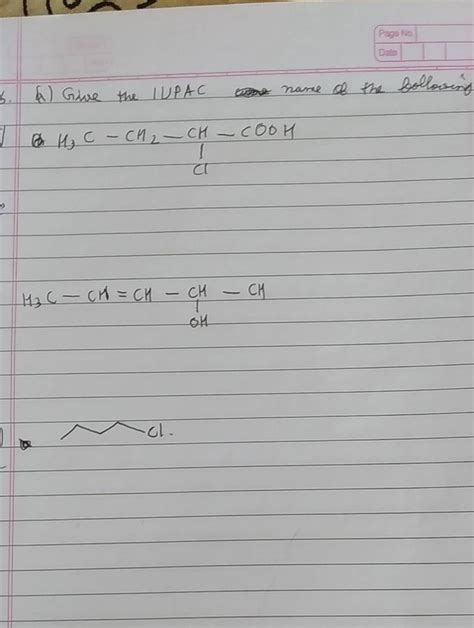 Page No.
Date
A) Give the IUPAC name of the following
H3C - CH2 - CH - COOH
|
Cl
H3C - CH = CH - CH - CH
|
OH
Cl.